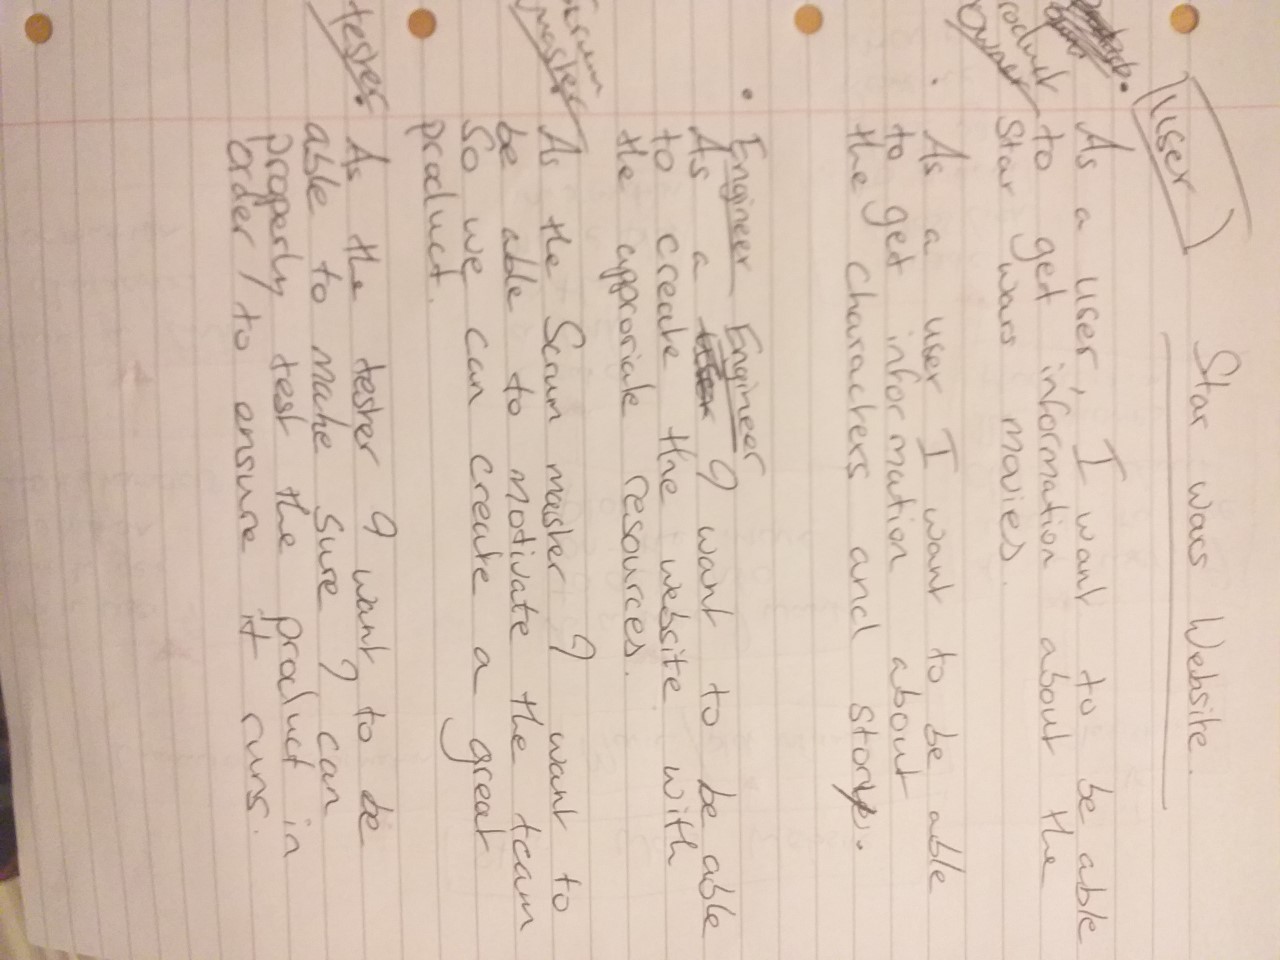 Star wars Website.
User
Product
Owner
As a user, I want to be able
to get information about the
Star wars movies.
As a user I want to be able
to get information about
the characters and story.
Engineer Engineer
As a I want to be able
to create the website with
the approriate resources.
Scrum
master
As the Scrum master I want to
be able to motivate the team
So we can create a great
product.
tester
As the tester I want to be
able to make sure I can
properly test the product in
order to ensure it runs.